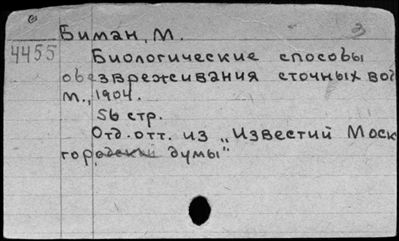 Биман, М.
3
4455 Биологические способы
обезвреживания сточных вод
М., 1904.
56 стр.
Отд. отт. из „Известий Моск
городской думы"